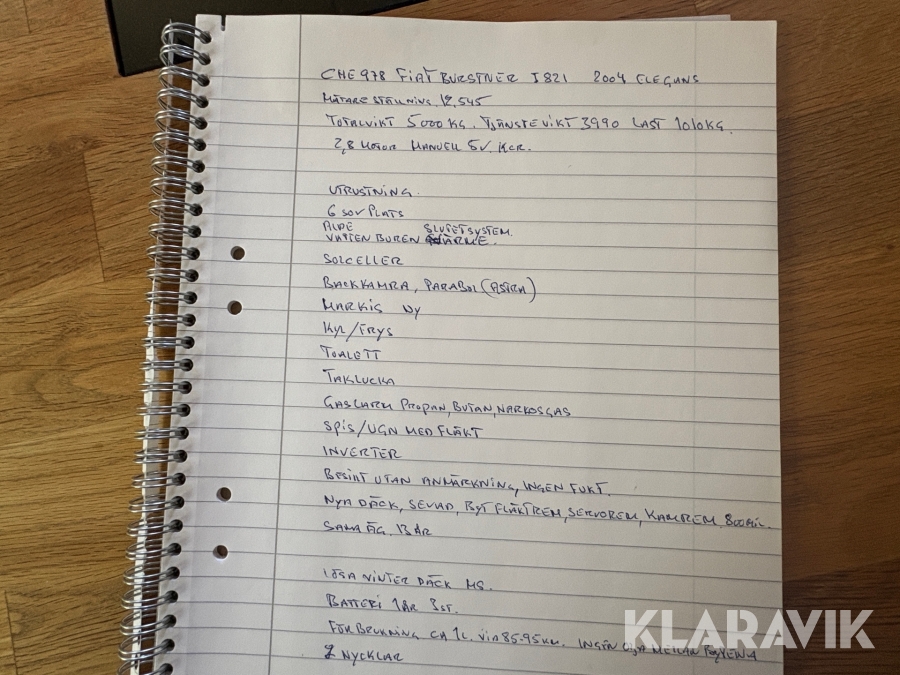 CHE978 FIAT BURSTNER I821 2004 ELEGANS
MÄTARESTÄLLNING 12.545
TOTALVIKT 5000 KG. TJÄNSTEVIKT 3990 LAST 1010KG.
2,8 MOTOR MANUELL 5V.
UTRUSTNING.
6 SOVPLATS
ALDE SLUTETSYSTEM.
VATTENBUREN VÄRME.
SOLCELLER
BACKKAMRA, PARABOL (ASTRA)
MARKIS NY
KYL/FRYS
TOALETT
TAKLUCKA
GASLARM PROPAN, BUTAN, NARKOSGAS
SPIS/UGN MED FLÄKT
INVERTER
BESIKT UTAN ANMÄRKNING, INGEN FUKT.
NYA DÄCK, SEVAD, BYT FLÄKTREM, SERVOREM, KAMREM. 800MIL.
SAMA ÄG. 13 ÅR
LÖSA VINTER DÄCK MS.
BATTERI 1ÅR 3ST.
FÖRBRUKNING CA 1L. VID 85-95KM. INGEN OLJA MELLAN
2 NYCKLAR
KLARAVIK